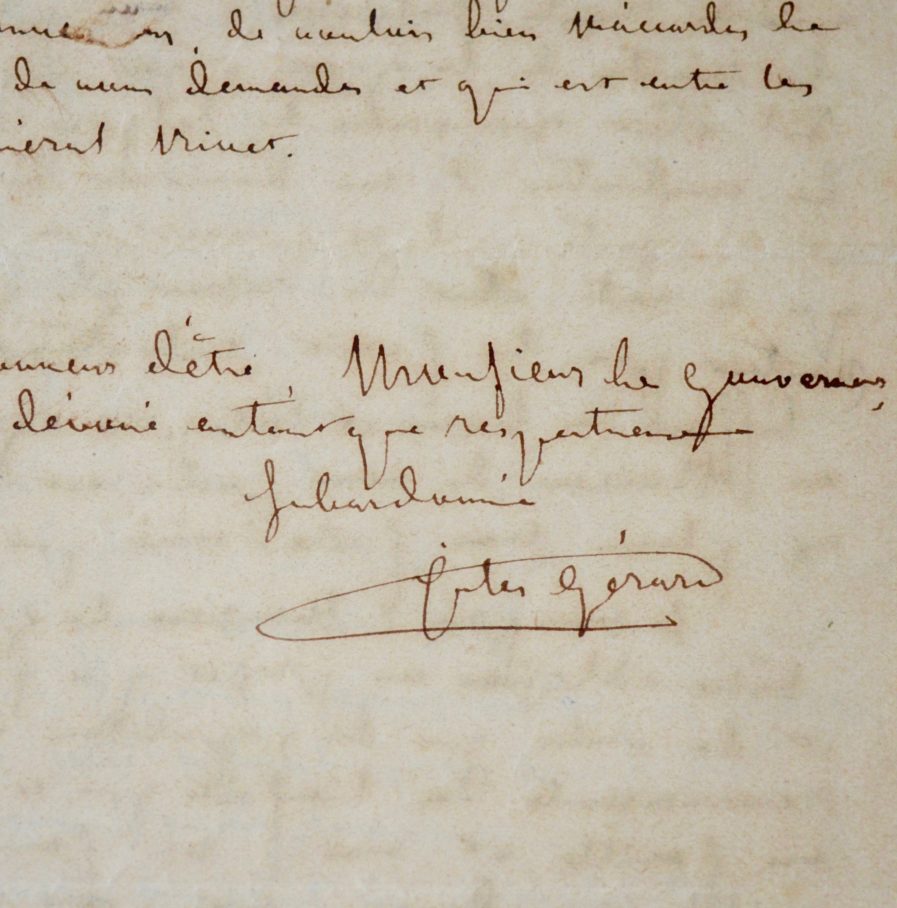 de vouloir bien m'accorder le
de mes demandes et qui est entre les
Vriuet.
d'être, Monsieur le Gouverneur,
dévoué autant que respectueux
Subordonné
Jules Gérard